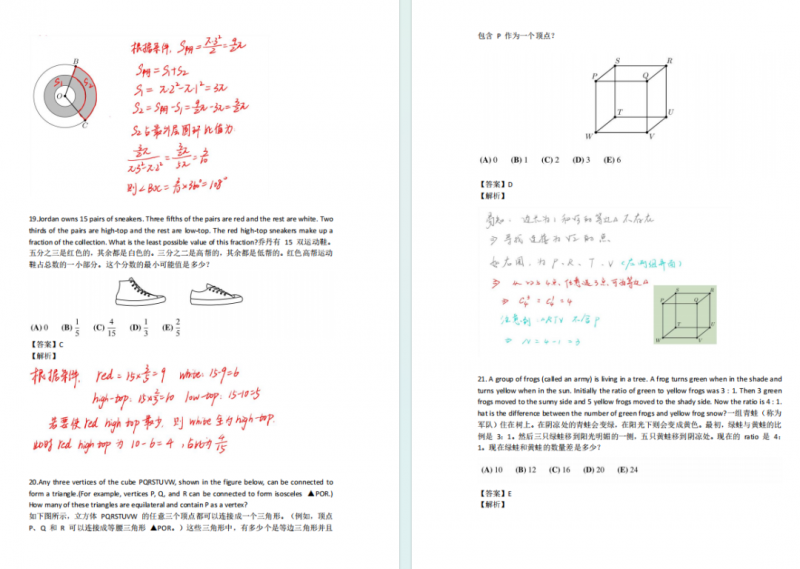 根据条件, S阴 = π·3²/2 = 9/2π
S阴 = S₁+S₂
S₁ = π·2²-π·1² = 3π
S₂ = S阴-S₁ = 9/2π-3π = 3/2π
S₂占最外层圆环比值为
3/2π / π·3²-π·2² = 3/2π / 5π = 3/10
则∠BOC = 3/10×360° = 108°
B
S₁
S₂
O
C
19.Jordan owns 15 pairs of sneakers. Three fifths of the pairs are red and the rest are white. Two
thirds of the pairs are high-top and the rest are low-top. The red high-top sneakers make up a
fraction of the collection. What is the least possible value of this fraction?乔丹有 15 双运动鞋。
五分之三是红色的，其余都是白色的。三分之二是高帮的，其余都是低帮的。红色高帮运动
鞋占总数的一小部分。这个分数的最小可能值是多少？
(A) 0 (B) 1/5 (C) 4/15 (D) 1/3 (E) 2/5
【答案】C
【解析】
根据条件, red = 15×3/5 = 9 white: 15-9=6
high-top: 15×2/3=10 low-top: 15-10=5
若要使 red high top 最少, 则 white 全为 high-top.
此时 red high top 为 10-6=4 , 占比为 4/15
20.Any three vertices of the cube PQRSTUVW, shown in the figure below, can be connected to
form a triangle.(For example, vertices P, Q, and R can be connected to form isosceles ▲PQR.)
How many of these triangles are equilateral and contain P as a vertex?
如下图所示，立方体 PQRSTUVW 的任意三个顶点都可以连接成一个三角形。（例如，顶点
P、Q 和 R 可以连接成等腰三角形 ▲PQR。）这些三角形中，有多少个是等边三角形并且
包含 P 作为一个顶点？
S R
P Q
T U
W V
(A) 0 (B) 1 (C) 2 (D) 3 (E) 6
【答案】D
【解析】
边长为1
如右图, 为 P、R、T、V
4点, 任意选3点, 可为等边△
⇒ C₄³ = C₄¹ = 4
注意到 △RTV 不含P
⇒ N = 4-1 = 3
S R
P Q
T U
W V
21. A group of frogs (called an army) is living in a tree. A frog turns green when in the shade and
turns yellow when in the sun. Initially the ratio of green to yellow frogs was 3 : 1. Then 3 green
frogs moved to the sunny side and 5 yellow frogs moved to the shady side. Now the ratio is 4 : 1.
hat is the difference between the number of green frogs and yellow frog snow?一组青蛙（称为
军队）住在树上。在阴凉处的青蛙会变绿，在阳光下则会变成黄色。最初，绿蛙与黄蛙的比
例是 3：1。然后三只绿蛙移到阳光明媚的一侧，五只黄蛙移到阴凉处。现在的 ratio 是 4：
1。现在绿蛙和黄蛙的数量差是多少？
(A) 10 (B) 12 (C) 16 (D) 20 (E) 24
【答案】E
【解析】